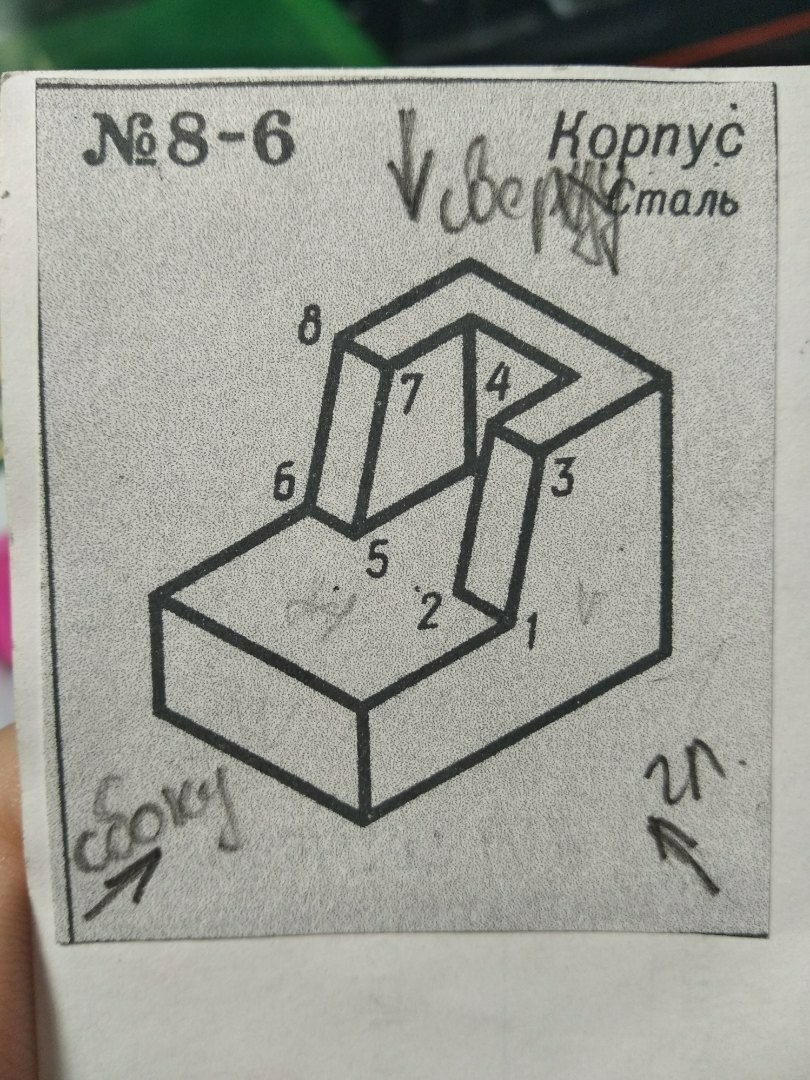 №8-6
Корпус
Сталь
сверху
8
7
4
6
3
5
2
1
сбоку
гл.